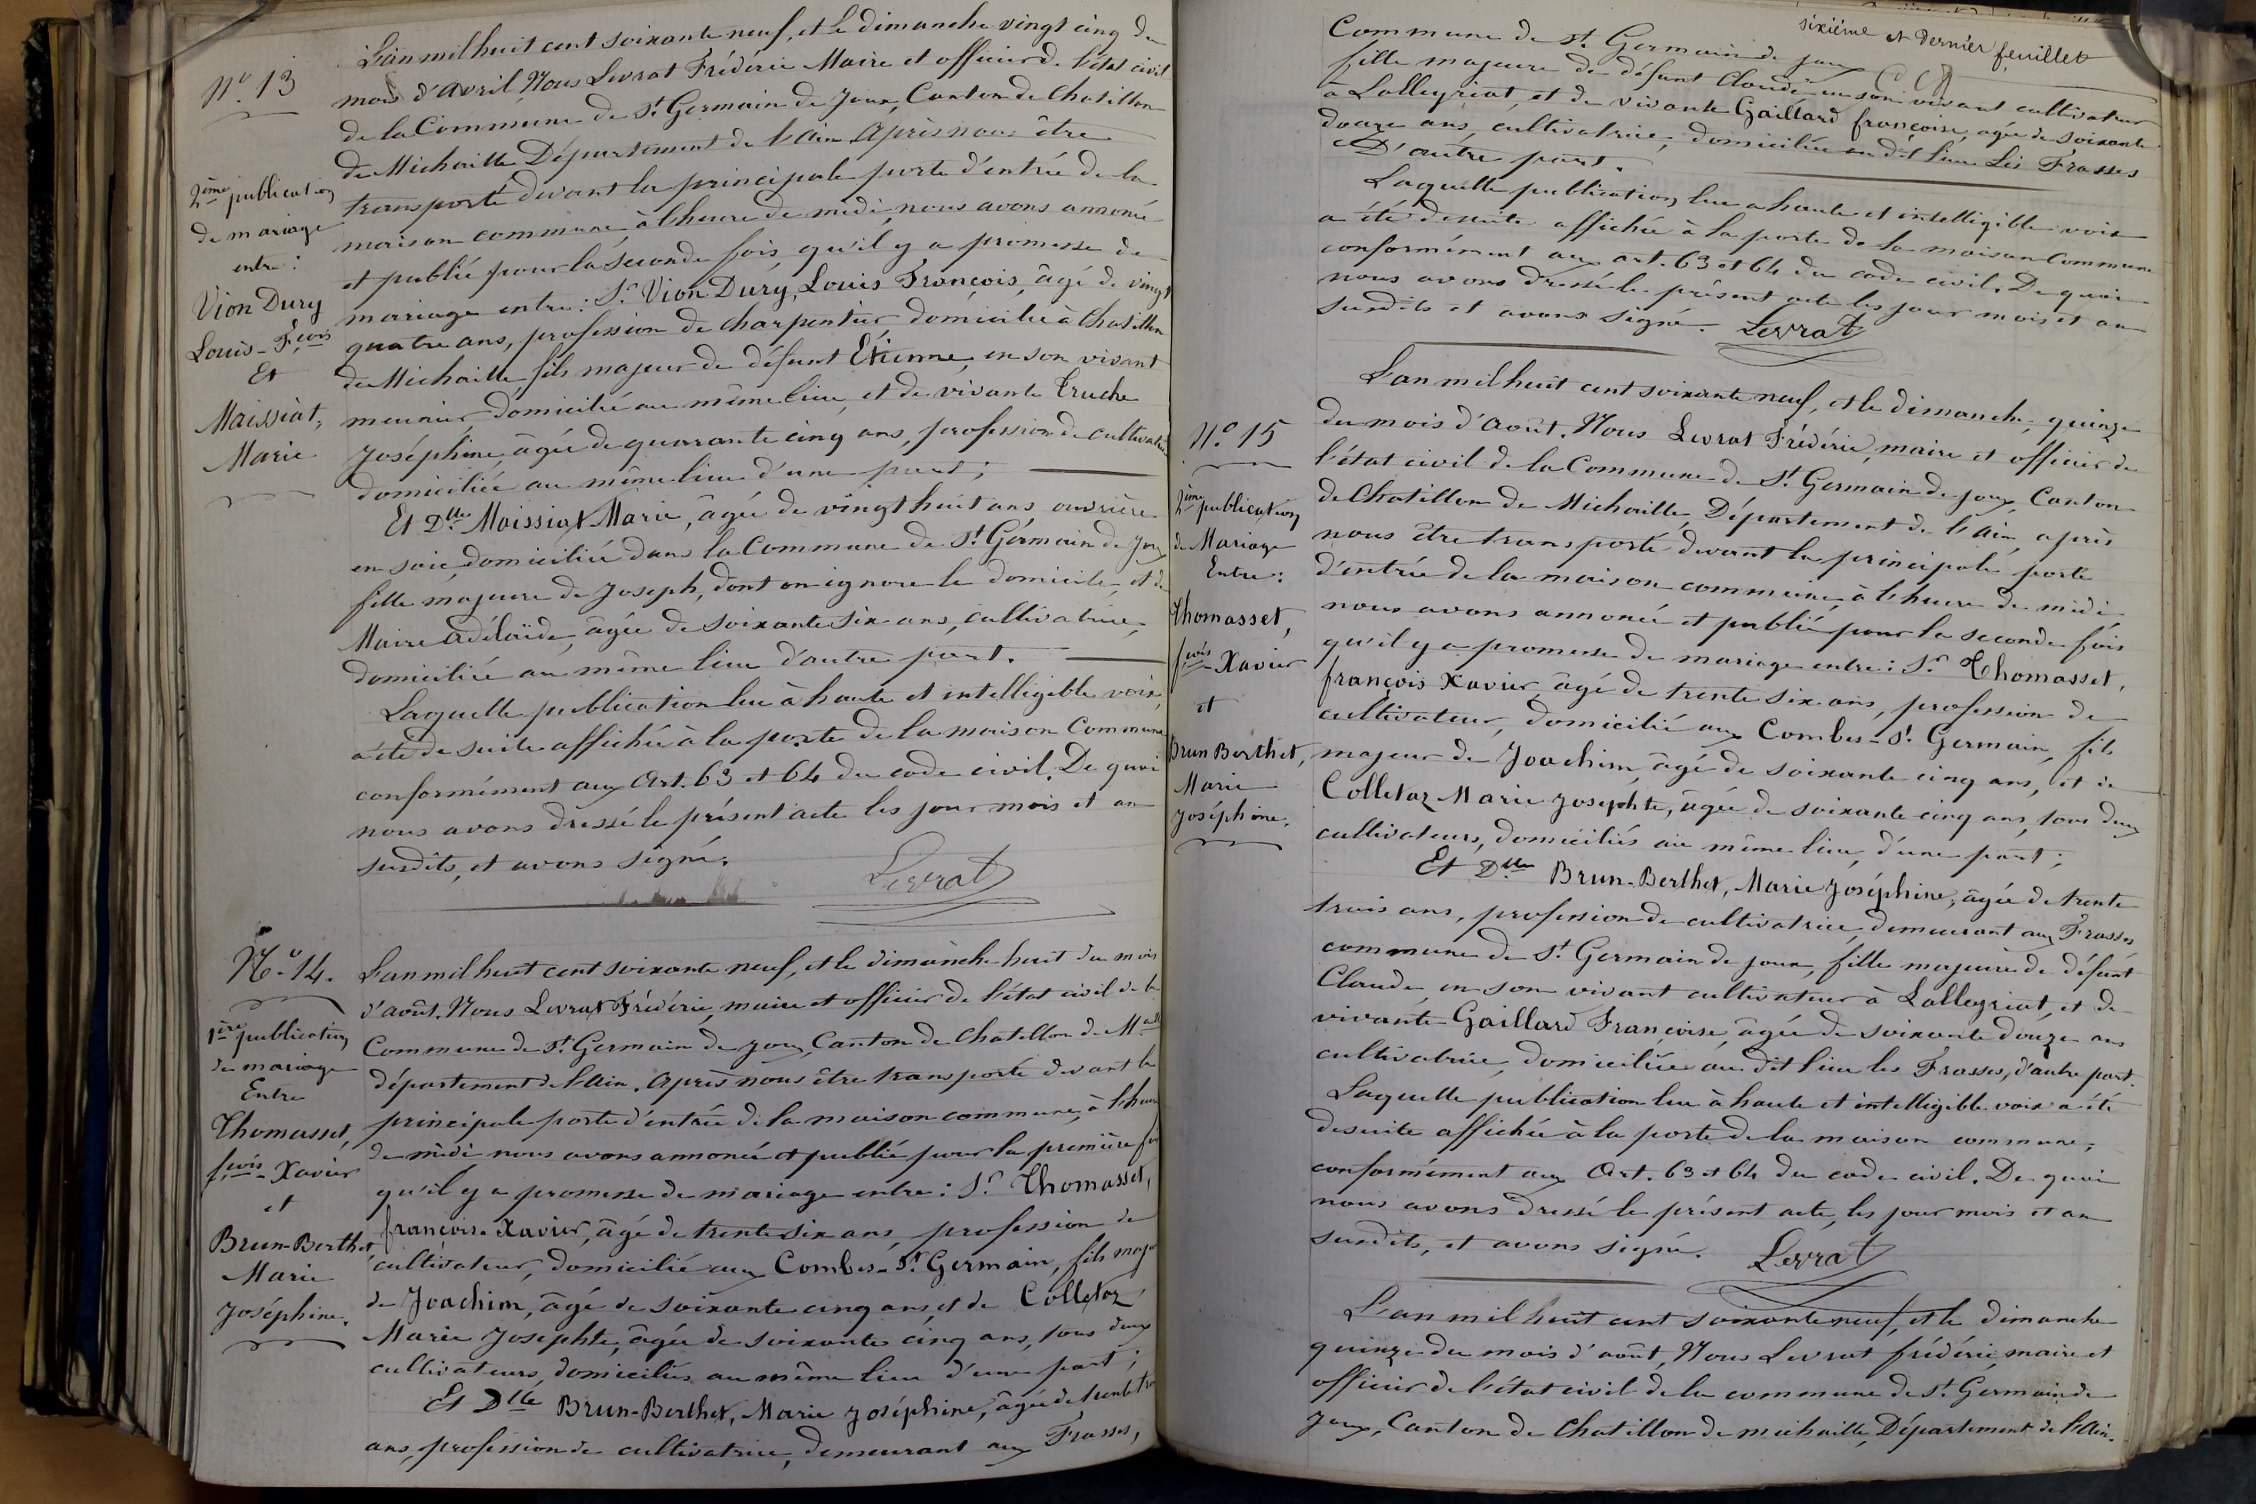 N.o 13
2ème publication
de mariage
entre :
Vion Dury
Louis-F.çois
Et
Maissiat,
Marie
L'an mil huit cent soixante neuf, et le dimanche vingt cinq du
mois d'avril, Nous Levrat Frédéric Maire et officier de l'état civil
de la Commune de St Germain de Joux, Canton de Chatillon
de Michaille Département de l'Ain. Après nous être
transporté devant la principale porte d'entrée de la
maison commune, à l'heure de midi, nous avons annoncé
et publié pour la seconde fois, qu'il y a promesse de
mariage entre : Sr Vion Dury, Louis François, âgé de vingt
quatre ans, profession de charpentier domicilié à Chatillon
de Michaille fils majeur de défunt Etienne, en son vivant
meunier, domicilié au même lieu, et de vivante Truche
Joséphine, âgée de quarante cinq ans, profession de cultivatrice
domiciliée au même lieu d'une part ;
Et Dlle Maissiat Marie, âgée de vingt huit ans ouvrière
en soie, domiciliée dans la Commune de St Germain de Joux
fille majeure de Joseph, dont on ignore le domicile, et de
Maire Adélaïde, âgée de soixante six ans, cultivatrice,
domiciliée au même lieu d'autre part.
Laquelle publication lue à haute et intelligible voix,
a été de suite affichée à la porte de la maison Commune
conformément aux Art. 63 et 64 du code civil. De quoi
nous avons dressé le présent acte les jour mois et an
susdits, et avons signé.
Levrat
N.o 14.
1ère publication
de mariage
Entre
Thomasset,
fçois-Xavier
et
Brun-Berthet,
Marie
Joséphine.
L'an mil huit cent soixante neuf, et le dimanche huit du mois
d'août. Nous Levrat Frédéric, maire et officier de l'état civil de la
Commune de St Germain de Joux, Canton de Chatillon de M.aille
département de l'Ain. Après nous être transporté devant la
principale porte d'entrée de la maison commune, à l'heure
de midi nous avons annoncé et publié pour la première fois
qu'il y a promesse de mariage entre : Sr Thomasset,
françois-Xavier, âgé de trente six ans, profession de
cultivateur, domicilié aux Combes-St Germain, fils majeur
de Joachim, âgé de soixante cinq ans, et de Colletaz
Marie Josephte, âgée de soixante cinq ans, tous deux
cultivateurs, domiciliés au même lieu d'une part ;
Et Dlle Brun-Berthet, Marie Joséphine, âgée de trente trois
ans, profession de cultivatrice, demeurant aux Frasses,
sixième et dernier feuillet
Commune de St Germain de joux
fille majeure de défunt Claude en son vivant cultivateur
à Lalleyriat, et de vivante Gaillard françoise, âgée de soixante
douze ans, cultivatrice, domiciliée au dit lieu Les Frasses
D'autre part.
Laquelle publication, lue à haute et intelligible voix
a été de suite affichée à la porte de la maison Commune
conformément aux art. 63 et 64 du code civil. De quoi
nous avons dressé le présent acte les jour mois et an
susdits et avons signé. Levrat
N.o 15
2ème publication
de Mariage
Entre :
Thomasset,
fçois-Xavier
et
Brun Berthet,
Marie
Joséphine.
L'an mil huit cent soixante neuf, et le dimanche, quinze
du mois d'Août. Nous Levrat Frédéric, maire et officier de
l'état civil de la Commune de St Germain de joux, Canton
de Chatillon de Michaille, Département de l'Ain, après
nous être transporté devant la principale porte
d'entrée de la maison commune, à l'heure de midi,
nous avons annoncé et publié pour la seconde fois
qu'il y a promesse de mariage entre : Sr Thomasset,
françois Xavier, âgé de trente six ans, profession de
cultivateur, domicilié aux Combes-St Germain, fils
majeur de Joachim, âgé de soixante cinq ans, et de
Colletaz Marie Josephte, âgée de soixante cinq ans, tous deux
cultivateurs, domiciliés au même lieu, d'une part ;
Et Dlle Brun-Berthet, Marie Joséphine, âgée de trente
trois ans, profession de cultivatrice, demeurant aux Frasses
commune de St Germain de joux, fille majeure de défunt
Claude en son vivant cultivateur à Lalleyriat, et de
vivante Gaillard Françoise, âgée de soixante douze ans
cultivatrice, domiciliée au dit lieu les Frasses, d'autre part.
Laquelle publication lue à haute et intelligible voix a été
desuite affichée à la porte de la maison commune,
conformément aux Art. 63 et 64 du code civil. De quoi
nous avons dressé le présent acte, les jour mois et an
susdits, et avons signé. Levrat
L'an mil huit cent soixante neuf, et le dimanche
quinze du mois d'août, Nous Levrat frédéric, maire et
officier de l'état civil de la commune de St Germain de
Joux, Canton de Chatillon de michaille, Département de l'Ain.